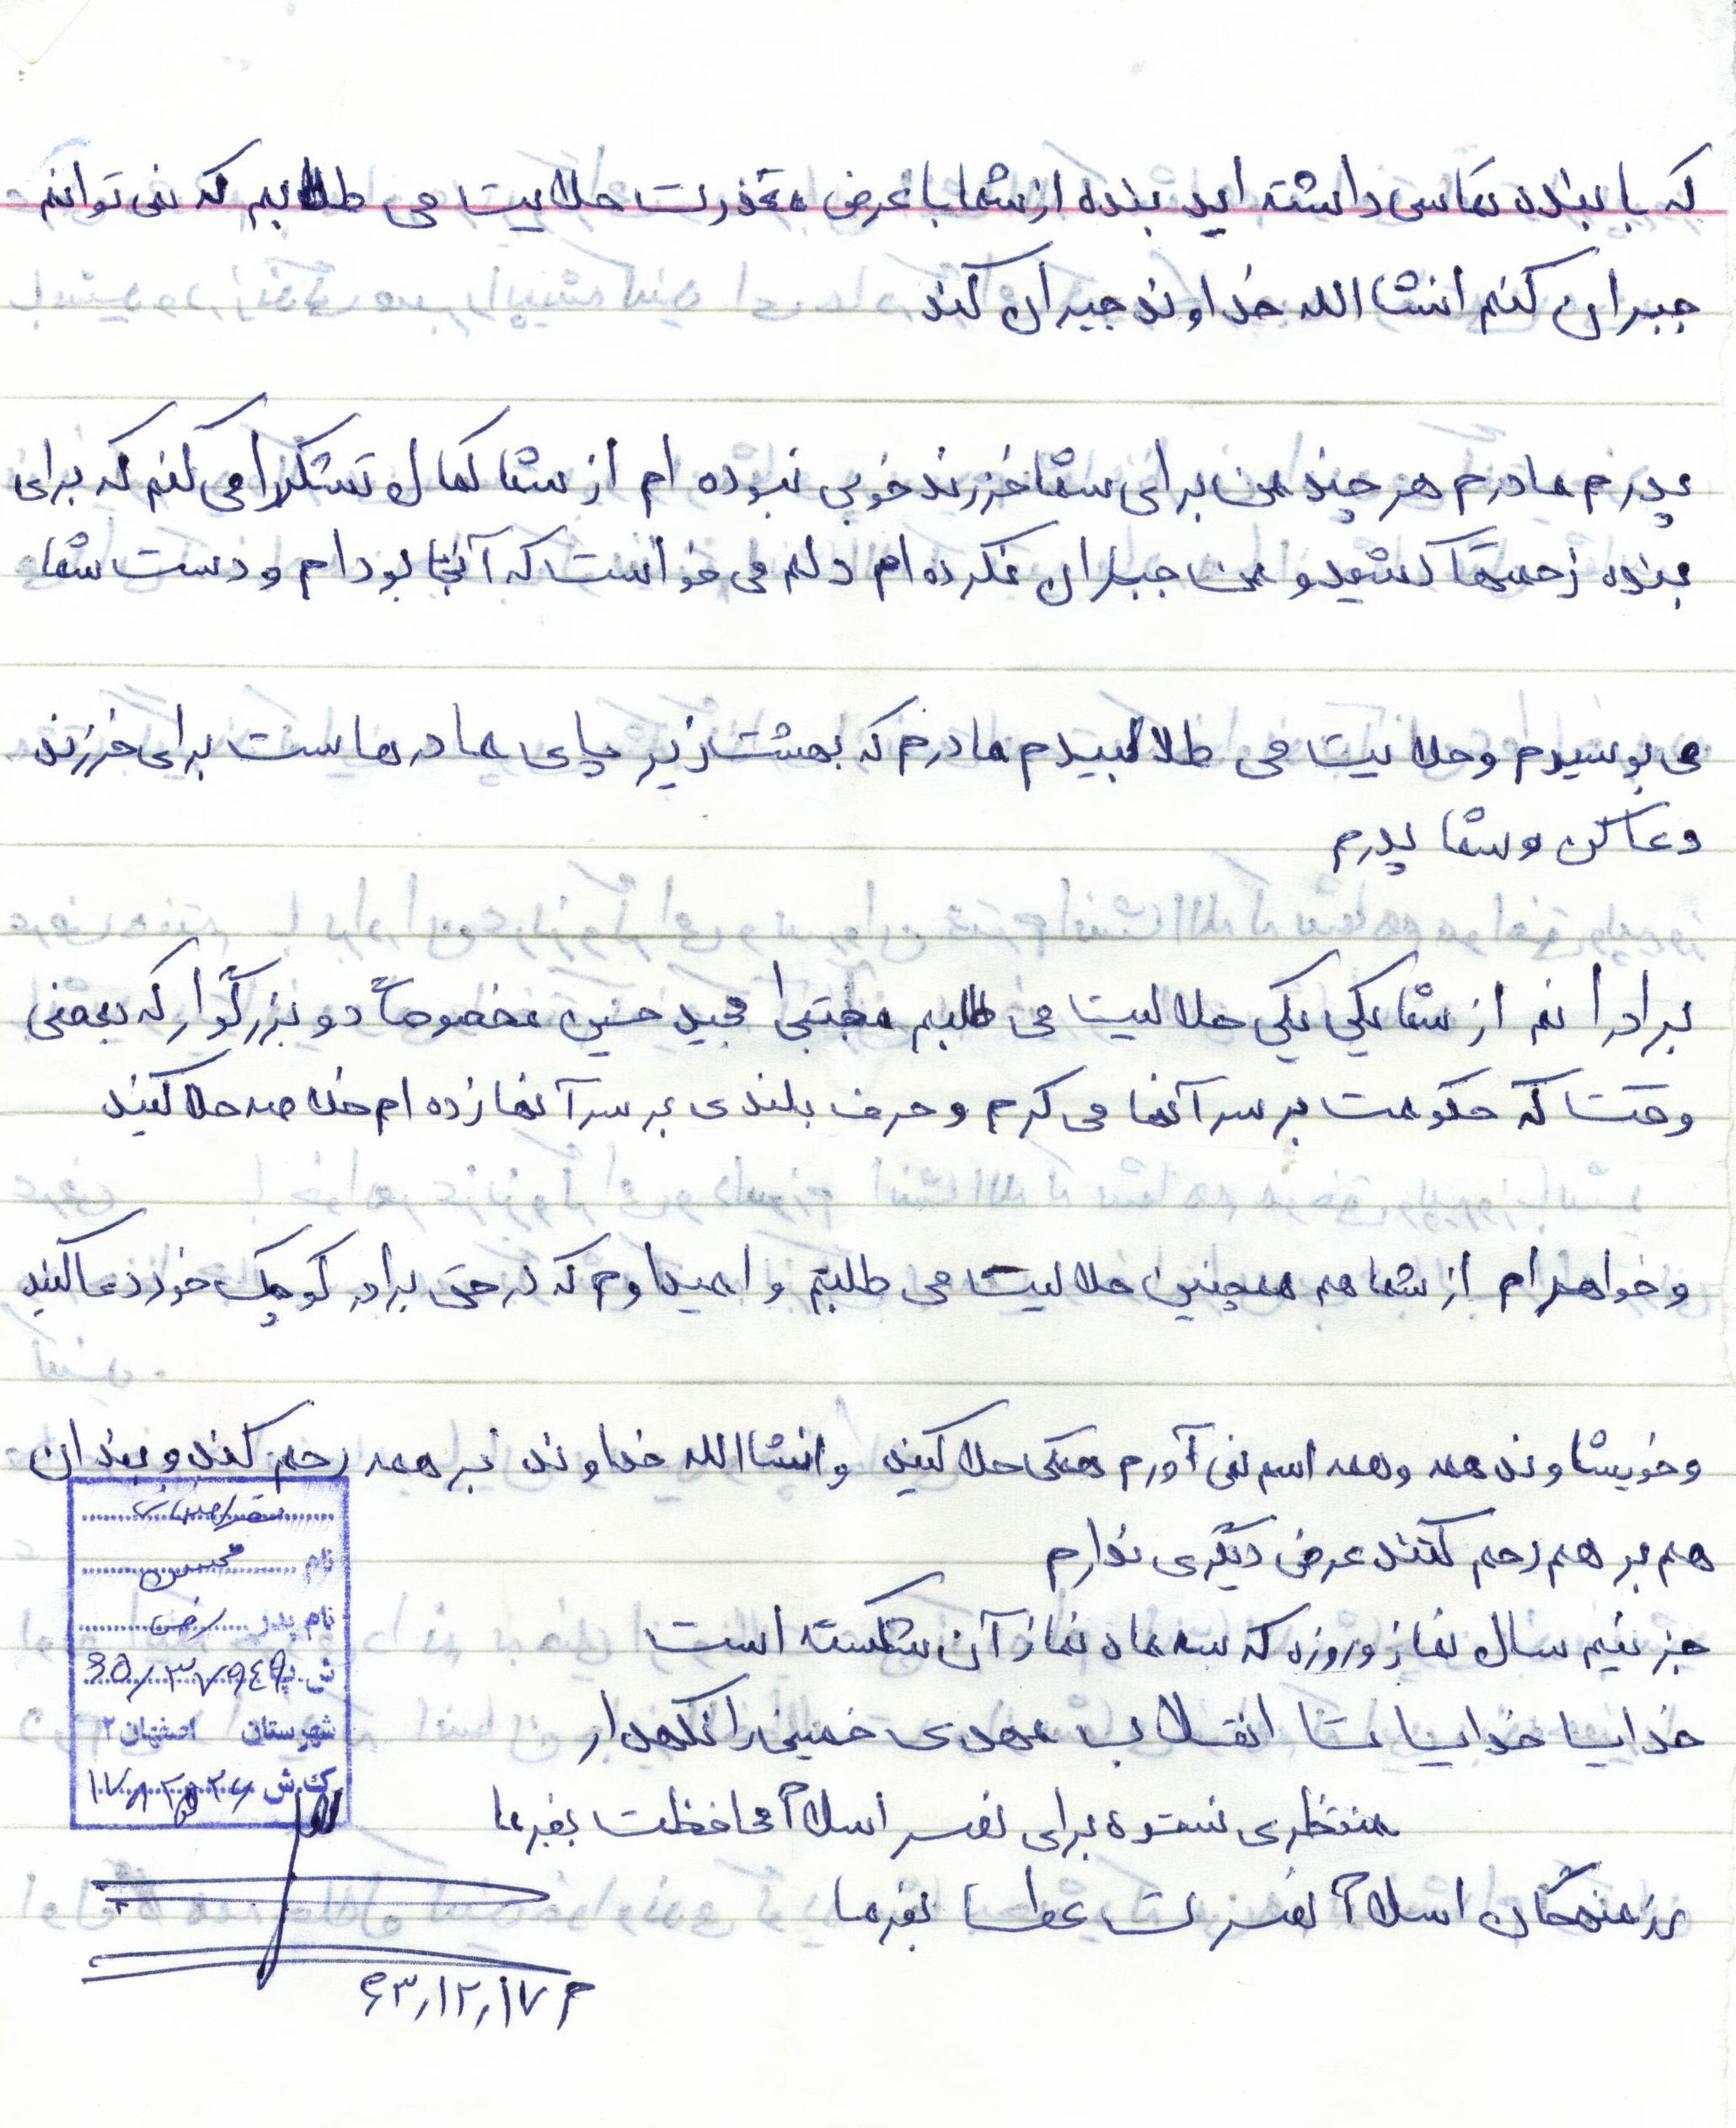 که با بنده تماسی داشته اید بنده از شما با عرض معذرت حلالیت می طلبم که نمی توانم
جبران کنم انشا الله خداوند جبران کند
پدرم مادرم هر چند من برای شما فرزند خوبی نبوده ام از شما کمال تشکر را می کنم که برای
بنده زحمتها کشید و من جبران نکرده ام دلم می خواست که آنجا بودام و دست شما
می بوسیدم و حلالیت می طلابیدم مادرم که بهشت زیر پای مادرهاست برای فرزند
دعا کن و شما پدرم
برادرانم از شما یکی یکی حلالیت می طلبم مجتبی مجید حسین مخصوصاً دو بزرگوار که بعضی
وقتا که حکومت بر سر آنها می کرم و حرف بلندی بر سر آنها زده ام خلاصه حلا کنید
و خواهرام از شما هم همچنین حلالیت می طلبم و امیداوم که در حق برادر کوچک خود دعا کنید
و خویشاوند همه و همه اسم نمی آورم همگی حلا کنید و انشا الله خداوند بر همه رحم کند و بندان
هم بر هم رحم کنند عرض دیگری ندارم
جز نیم سال نماز و روزه که سه ماه نماز آن شکسته است
خدایا خدایا تا انقلاب مهدی خمینی را نگهدار
منتظری نستوه برای نصر اسلام محافظت بفرما
رزمندگان اسلام نصرت عطا بفرما
نام محسن
نام پدر
ش.پ
شهرستان اصفهان ۲
ک.ش
۶۳,۱۲,۱۷